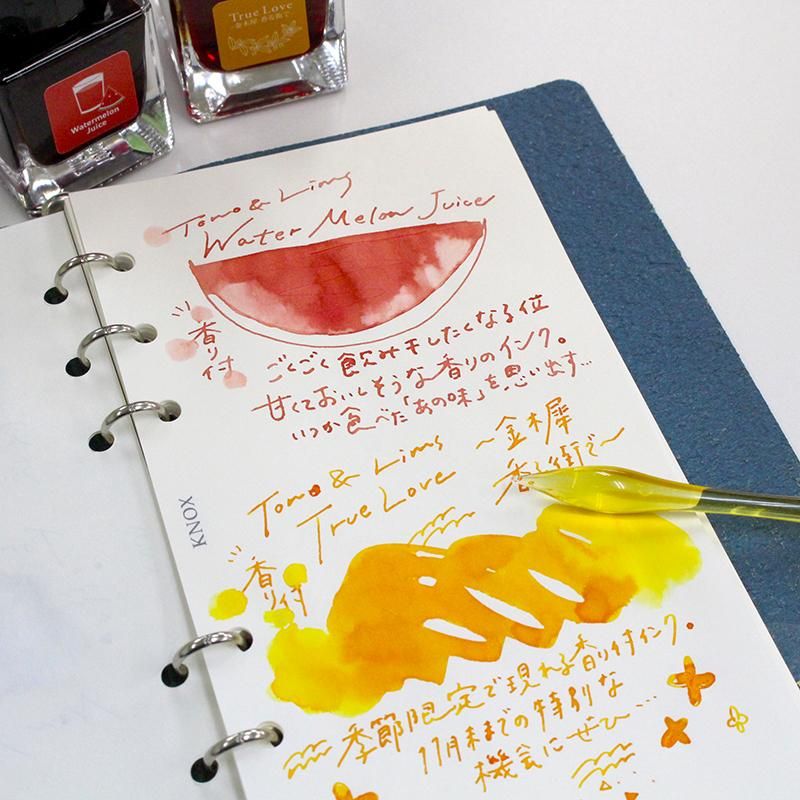 True Love
〜金木犀 香る街で〜
Watermelon
Juice
Tono & Lims
Water Melon Juice
香り付
ごくごく飲み干したくなる位
甘くておいしそうな香りのインク。
いつか食べた「あの味」を思い出す…
Tono & Lims
True Love
〜金木犀
香る街で〜
香り付
KNOX
季節限定で現れる香り付インク。
11月末までの特別な
機会にぜひ…